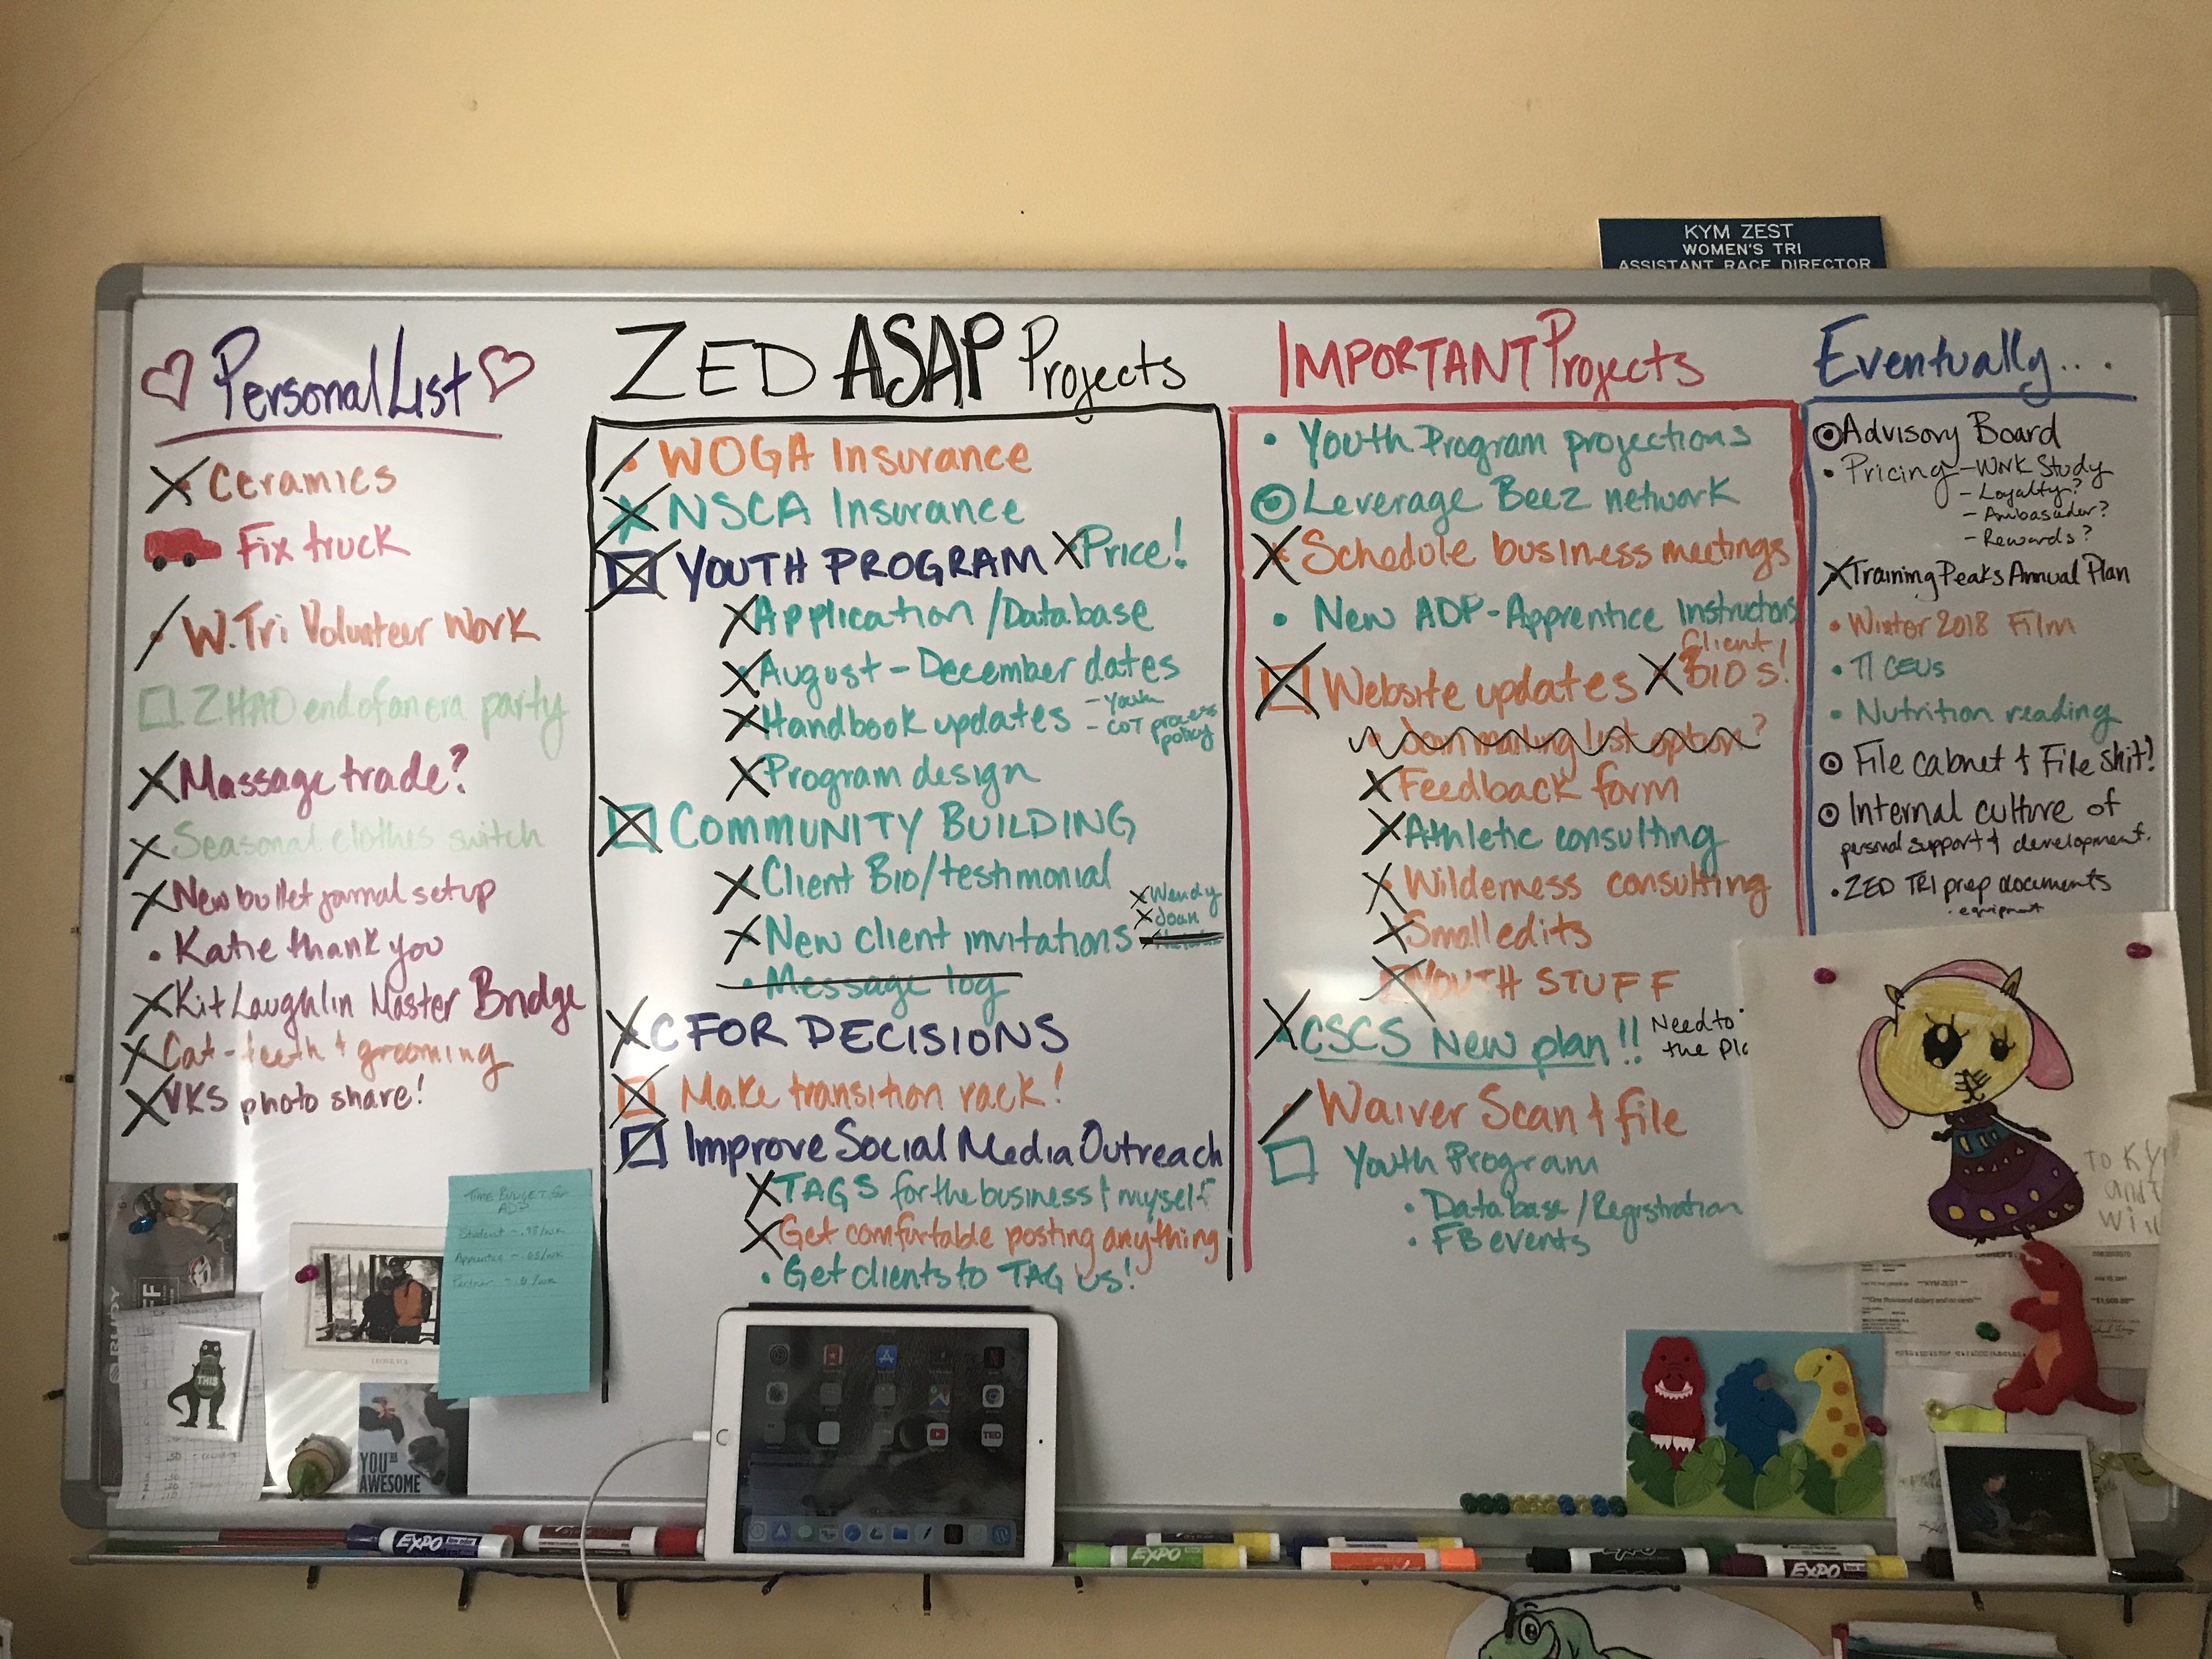 KYM ZEST
WOMEN'S TRI
ASSISTANT RACE DIRECTOR
Personal List
Ceramics
Fix truck
W. Tri Volunteer Work
ZHAO end of an era party
Massage trade?
Seasonal clothes switch
New bullet journal setup
Katie thank you
Kit Laughlin Master Bridge
Cat - teeth + grooming
VKS photo share!
ZED ASAP Projects
WOGA Insurance
NSCA Insurance
YOUTH PROGRAM Price!
Application / Database
August - December dates
Handbook updates - Youth
- COT process
policy
Program design
COMMUNITY BUILDING
Client Bio/testimonial
New client invitations
Wendy
Joan
Message log
C FOR DECISIONS
Make transition rack!
Improve Social Media Outreach
TAGS for the business + myself
Get comfortable posting anything
Get clients to TAG us!
IMPORTANT Projects
Youth Program projections
Leverage Beez network
Schedule business meetings
New ADP - Apprentice Instructors
Website updates Client BIOS!
Join mailing list option?
Feedback form
Athletic consulting
Wilderness consulting
Small edits
YOUTH STUFF
CSCS New plan!! Need to
the pla
Waiver Scan + file
Youth Program
Database / Registration
FB events
Eventually...
Advisory Board
Pricing - Work Study
- Loyalty?
- Ambasador?
- Rewards?
TrainingPeaks Annual Plan
Winter 2018 Film
TI CEUs
Nutrition reading
File cabnet + File shit!
Internal culture of
personal support + development.
ZED TRI prep documents
equipment
TO KY
and
Wi
TIME BUDGET for
ADP
Student
Apprentice
Partner
RUDY
THIS
YOU'RE
AWESOME
TED
KYM ZEST
EXPO
EXPO
EXPO
EXPO